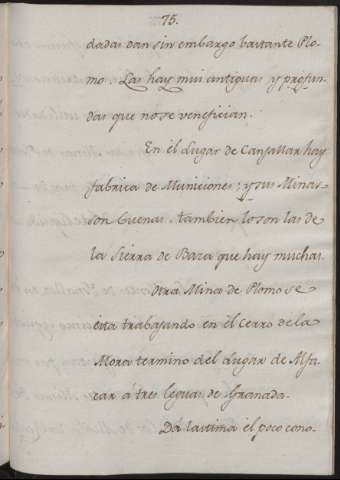 75.
dadas dan sin embargo bastante Plo-
mo. Las hay mui antiguas y profun-
das que no se venefician.
En el Lugar de Canjallar hay
fabrica de Municiones; y sus Minas
son buenas. tambien lo son las de
la Sierra de Baza que hay muchas.
Otra Mina de Plomo se
esta trabajando en el Cerro de la
Mora termino del Lugar de Alfa
car á tres leguas de Granada.
Dá lastima el poco cono-